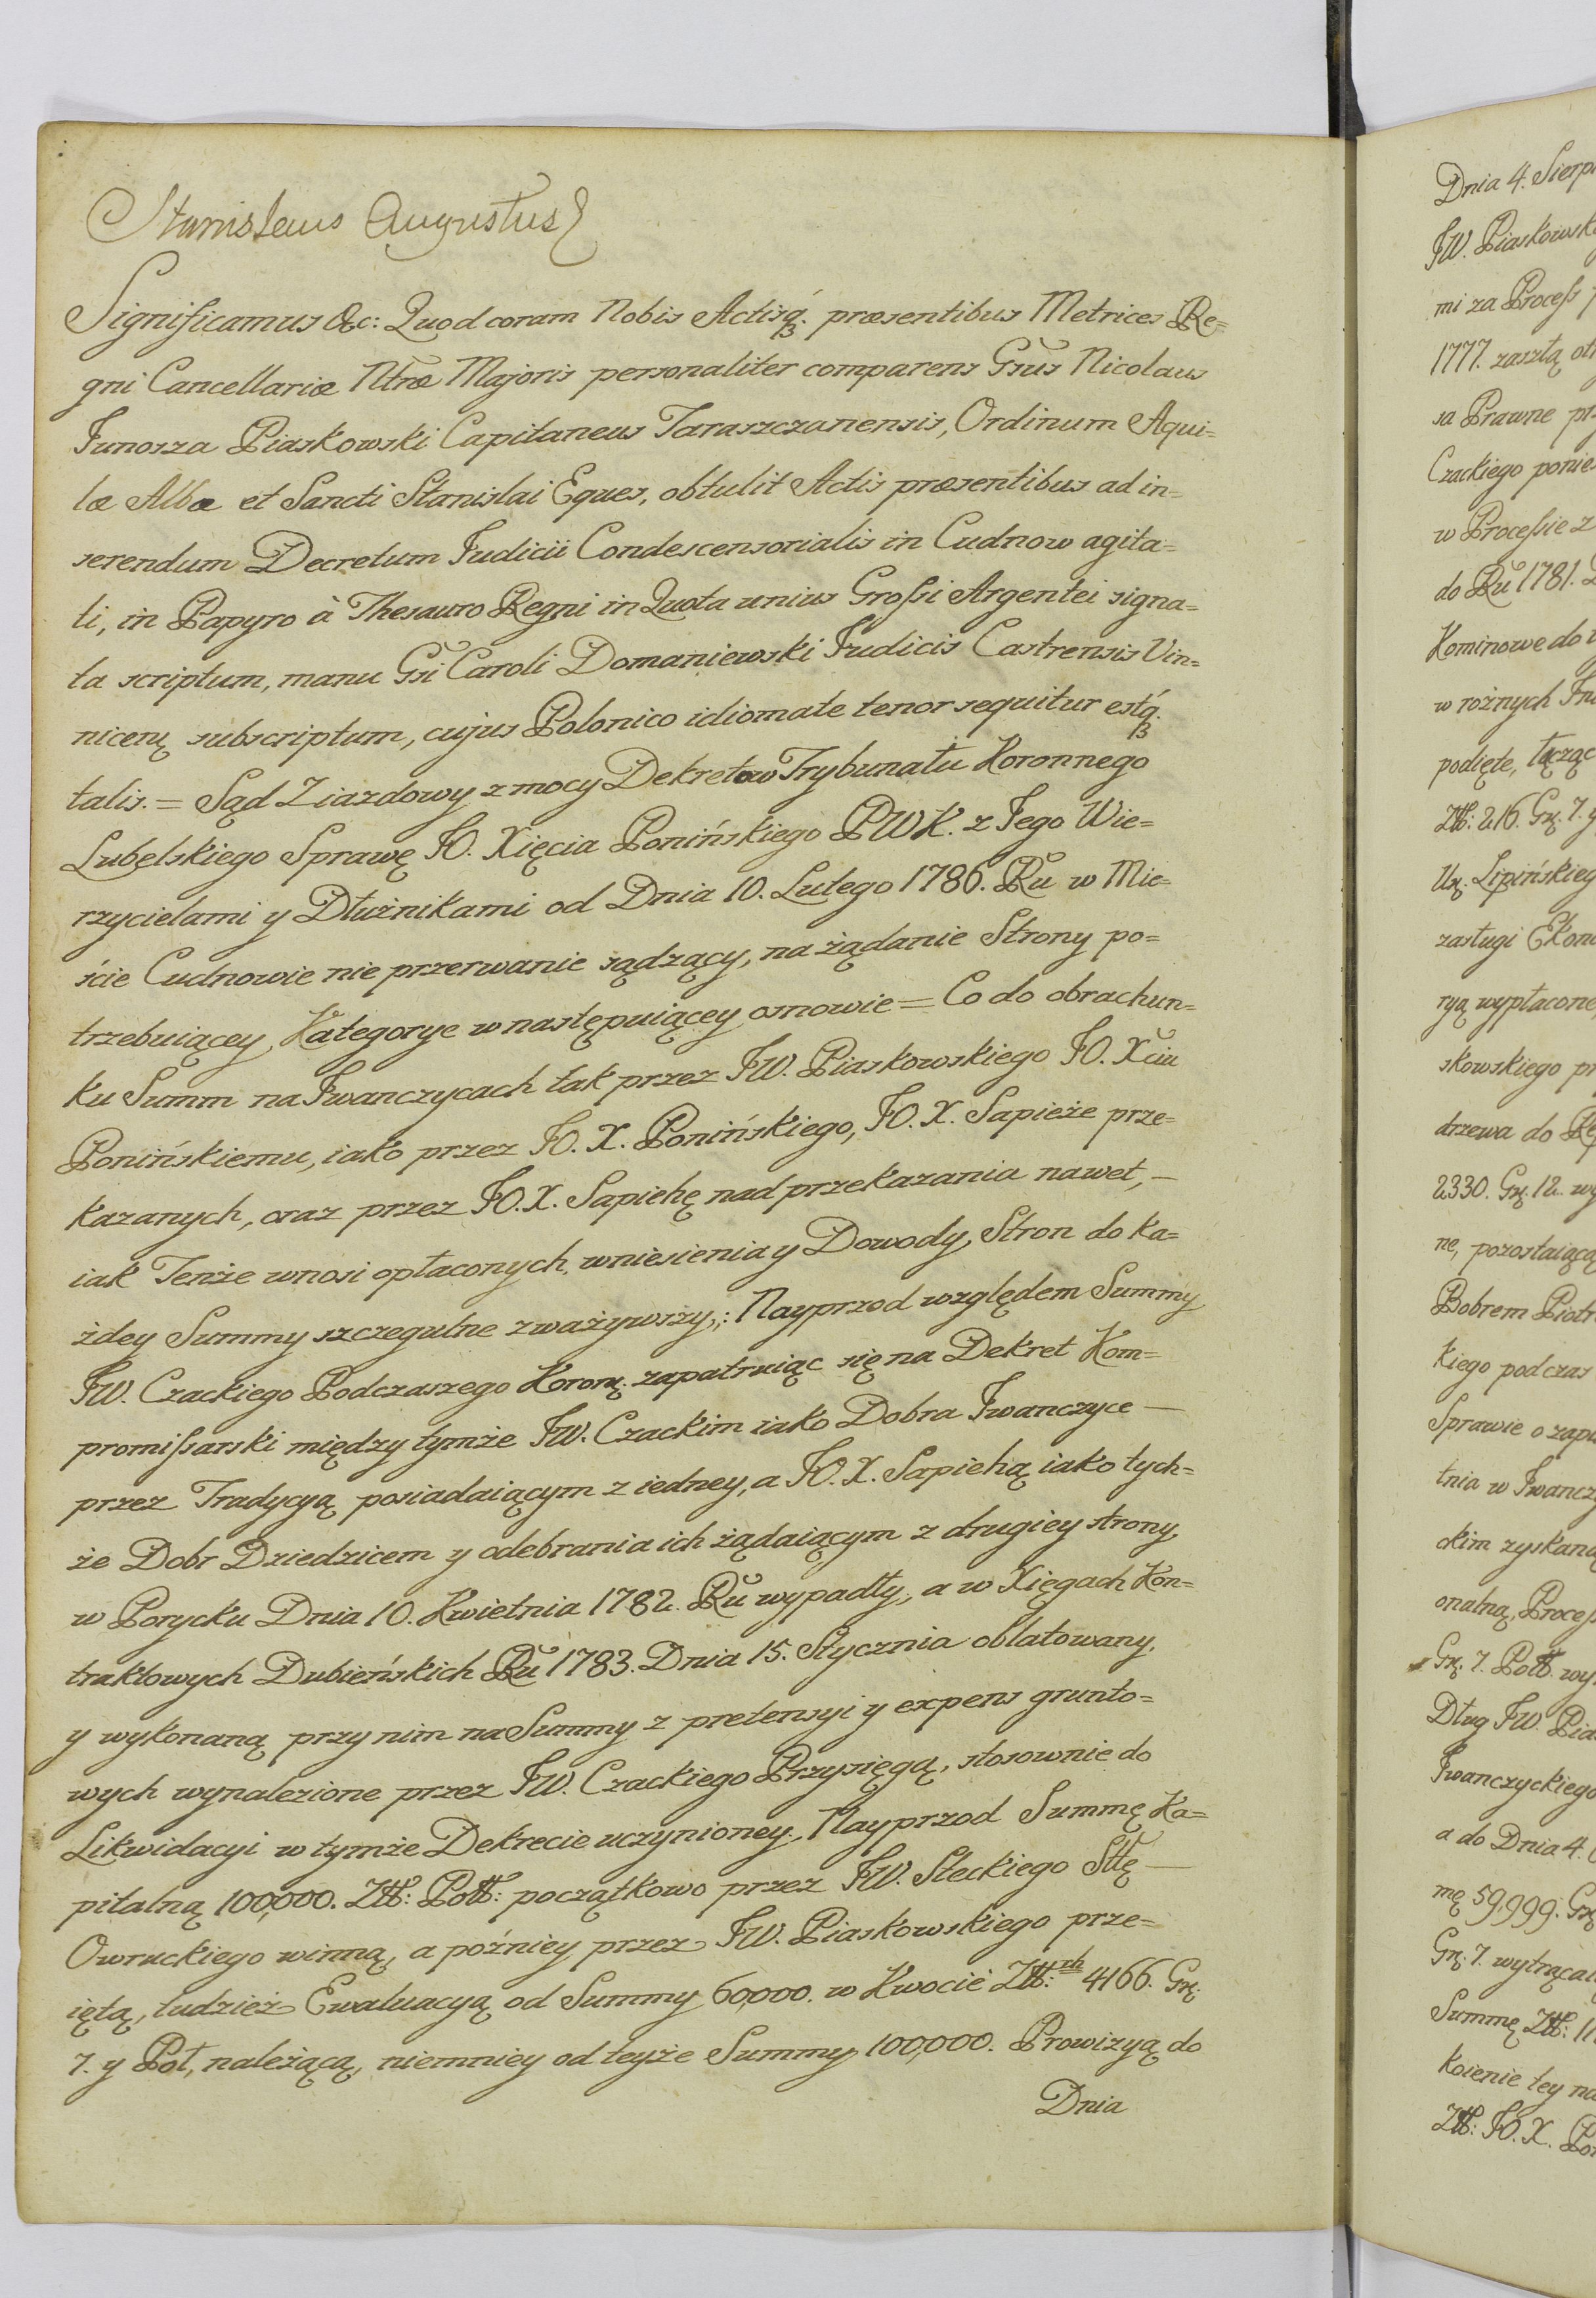 Stanislaus Augustus
Significamus &c: Quod coram Nobis Actisq́ꝫ. præsentibus Metrices Re=
gni Cancellariæ Ntræ Majoris personaliter comparens Gsus Nicolaus
Junosza Piaskowski Capitaneus Taraszczanensis, Ordinum Aqui=
læ Albæ et Sancti Stanislai Eques, obtulit Actis præsentibus ad in=
serendum Decretum Judicii Condescensorialis in Cudnow agita=
ti, in Papyro à Thesauro Regni in Quota unius Grossi Argentei signa=
ta scriptum, manu Gsi Caroli Domaniewski Judicis Castrensis Vin=
nicens subscriptum, cujus Polonico idiomate tenor sequitur estq́ꝫ.
talis. = Sąd Ziazdowy z mocy Dekretow Trybunału Koronnego
Lubelskiego Sprawę JO. Xięcia Ponińskiego PWK. z Jego Wie=
rzycielami y Dłużnikami od Dnia 10. Lutego 1786. Ru w Mie=
ście Cudnowie nie przerwanie sądzący, na żądanie Strony po=
trzebuiącey, Kategorye w następuiącey osnowie = Co do obrachun=
ku Summ na Iwanczycach tak przez JW. Piaskowskiego JO. Xciu
Ponińskiemu, iako przez JO. X. Ponińskiego, JO. X. Sapieże prze=
kazanych, oraz przez JO. X. Sapiehę nad przekazania nawet, —
iak Tenże wnosi opłaconych, wniesienia y Dowody, Stron do ka=
żdey Summy szczegulne zważywszy,: Nayprzod względem Summy
JW. Czackiego Podczaszego Koron. zapatruiąc się na Dekret Kom=
promissarski między tymże JW. Czackim iako Dobra Iwanczyce —
przez Tradycyą posiadaiącym z iedney, a JO. X. Sapiehą iako tych=
że Dobr Dziedzicem y odebrania ich żądaiącym z drugiey strony,
w Porycku Dnia 10. Kwietnia 1782. Ru wypadły, a w Xięgach Kon=
traktowych Dubieńskich Ru 1783. Dnia 15. Stycznia oblatowany,
y wykonaną przy nim na Summy z pretensyi y expens grunto=
wych wynalezione przez JW. Czackiego Przysięgą, stosownie do
Likwidacyi w tymże Dekrecie uczynioney, Nayprzod Summę Ka=
pitalną 100,000. Złł: Poll: początkowo przez JW. Steckiego Sttę —
Owruckiego winną, a pożniey przez JW. Piaskowskiego prze=
iętą, tudzież Ewaluacyą od Summy 60,000. w Kwocie Złł:ch 4166. Gr.
7. y Poł, należącą, niemniey od teyże Summy 100,000. Prowizyą do
Dnia
Dnia 4. Sierp
JW. Piaskowsk
mi za Process
1777. zaszłą
sa Prawne
Czackiego ponie
w Processie z
do Ru 1781.
Kominowe do
w rożnych
podięte, łącząc
Złł: 216. Gr. 7. y
Ur. Lipińskieg
zasługi Ekon
ryą wypłacone,
skowskiego pr
drzewa do
2330. Gr. 12. wy
ne, pozostaiącą
Bobrem Piotr
kiego podczas
Sprawie o zapi
tnia w Iwancz
ckim zyskaną
onalną, Process
Gr. 7. Poll. wy
Dług JW. Pia
Iwanczyckiego
a do Dnia 4.
mę 59,999. Gr
Gr. 7. wytrąca
Summę Złł: 11
koienie tey na
Złł: JO. X. Pon